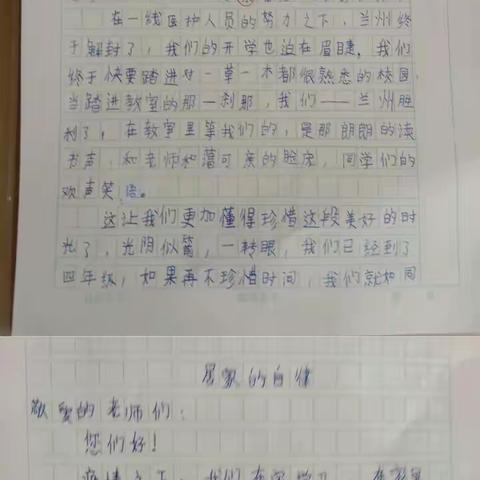 在一线医护人员的努力之下，兰州终
于解封了，我们的开学也迫在眉睫，我们
终于快要踏进对一草一木都很熟悉的校园，
当踏进教室的那一刹那，我们——兰州胜
利了，在教室里等我们的，是那朗朗的读
书声，和老师和蔼可亲的脸庞，同学们的
欢声笑语。
这让我们更加懂得珍惜这段美好的时
光了，光阴似箭，一转眼，我们已经到了
四年级，如果再不珍惜时间，我们就如同
居家的自律
敬爱的老师们：
您们好！
疫情之下，我们在家学习，在家